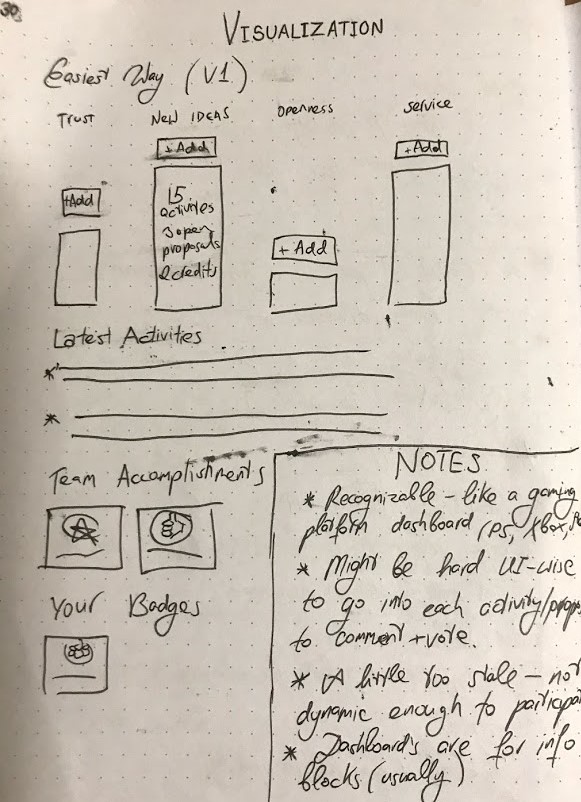 30
VISUALIZATION
Easiest Way (V1)
TRUST
NEW IDEAS
OPENNESS
SERVICE
+Add
+Add
+Add
+Add
15
activities
3 open
proposals
2 credits
Latest Activities
Team Accomplishments
Your Badges
NOTES
* Recognizable - like a gaming
platform dashboard (PS, Xbox,
* Might be hard UI-wise
to go into each activity/prop
to comment + vote.
* A little too stale - not
dynamic enough to participa
* Dashboards are for info
blocks (usually)